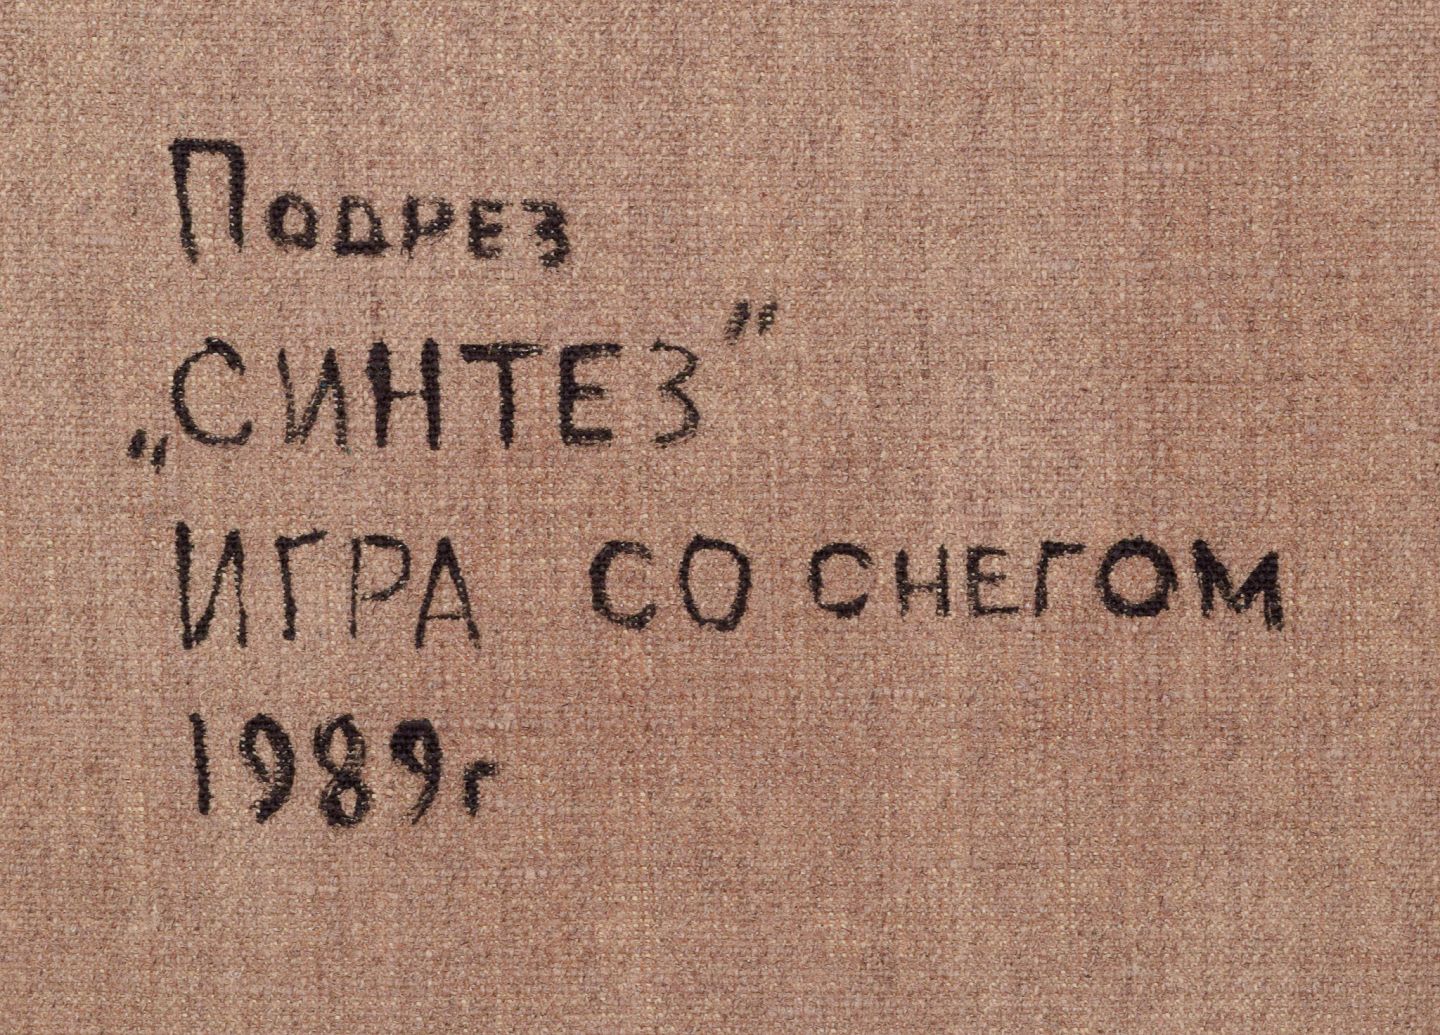 Подрез
„СИНТЕЗ”
ИГРА СО СНЕГОМ
1989г